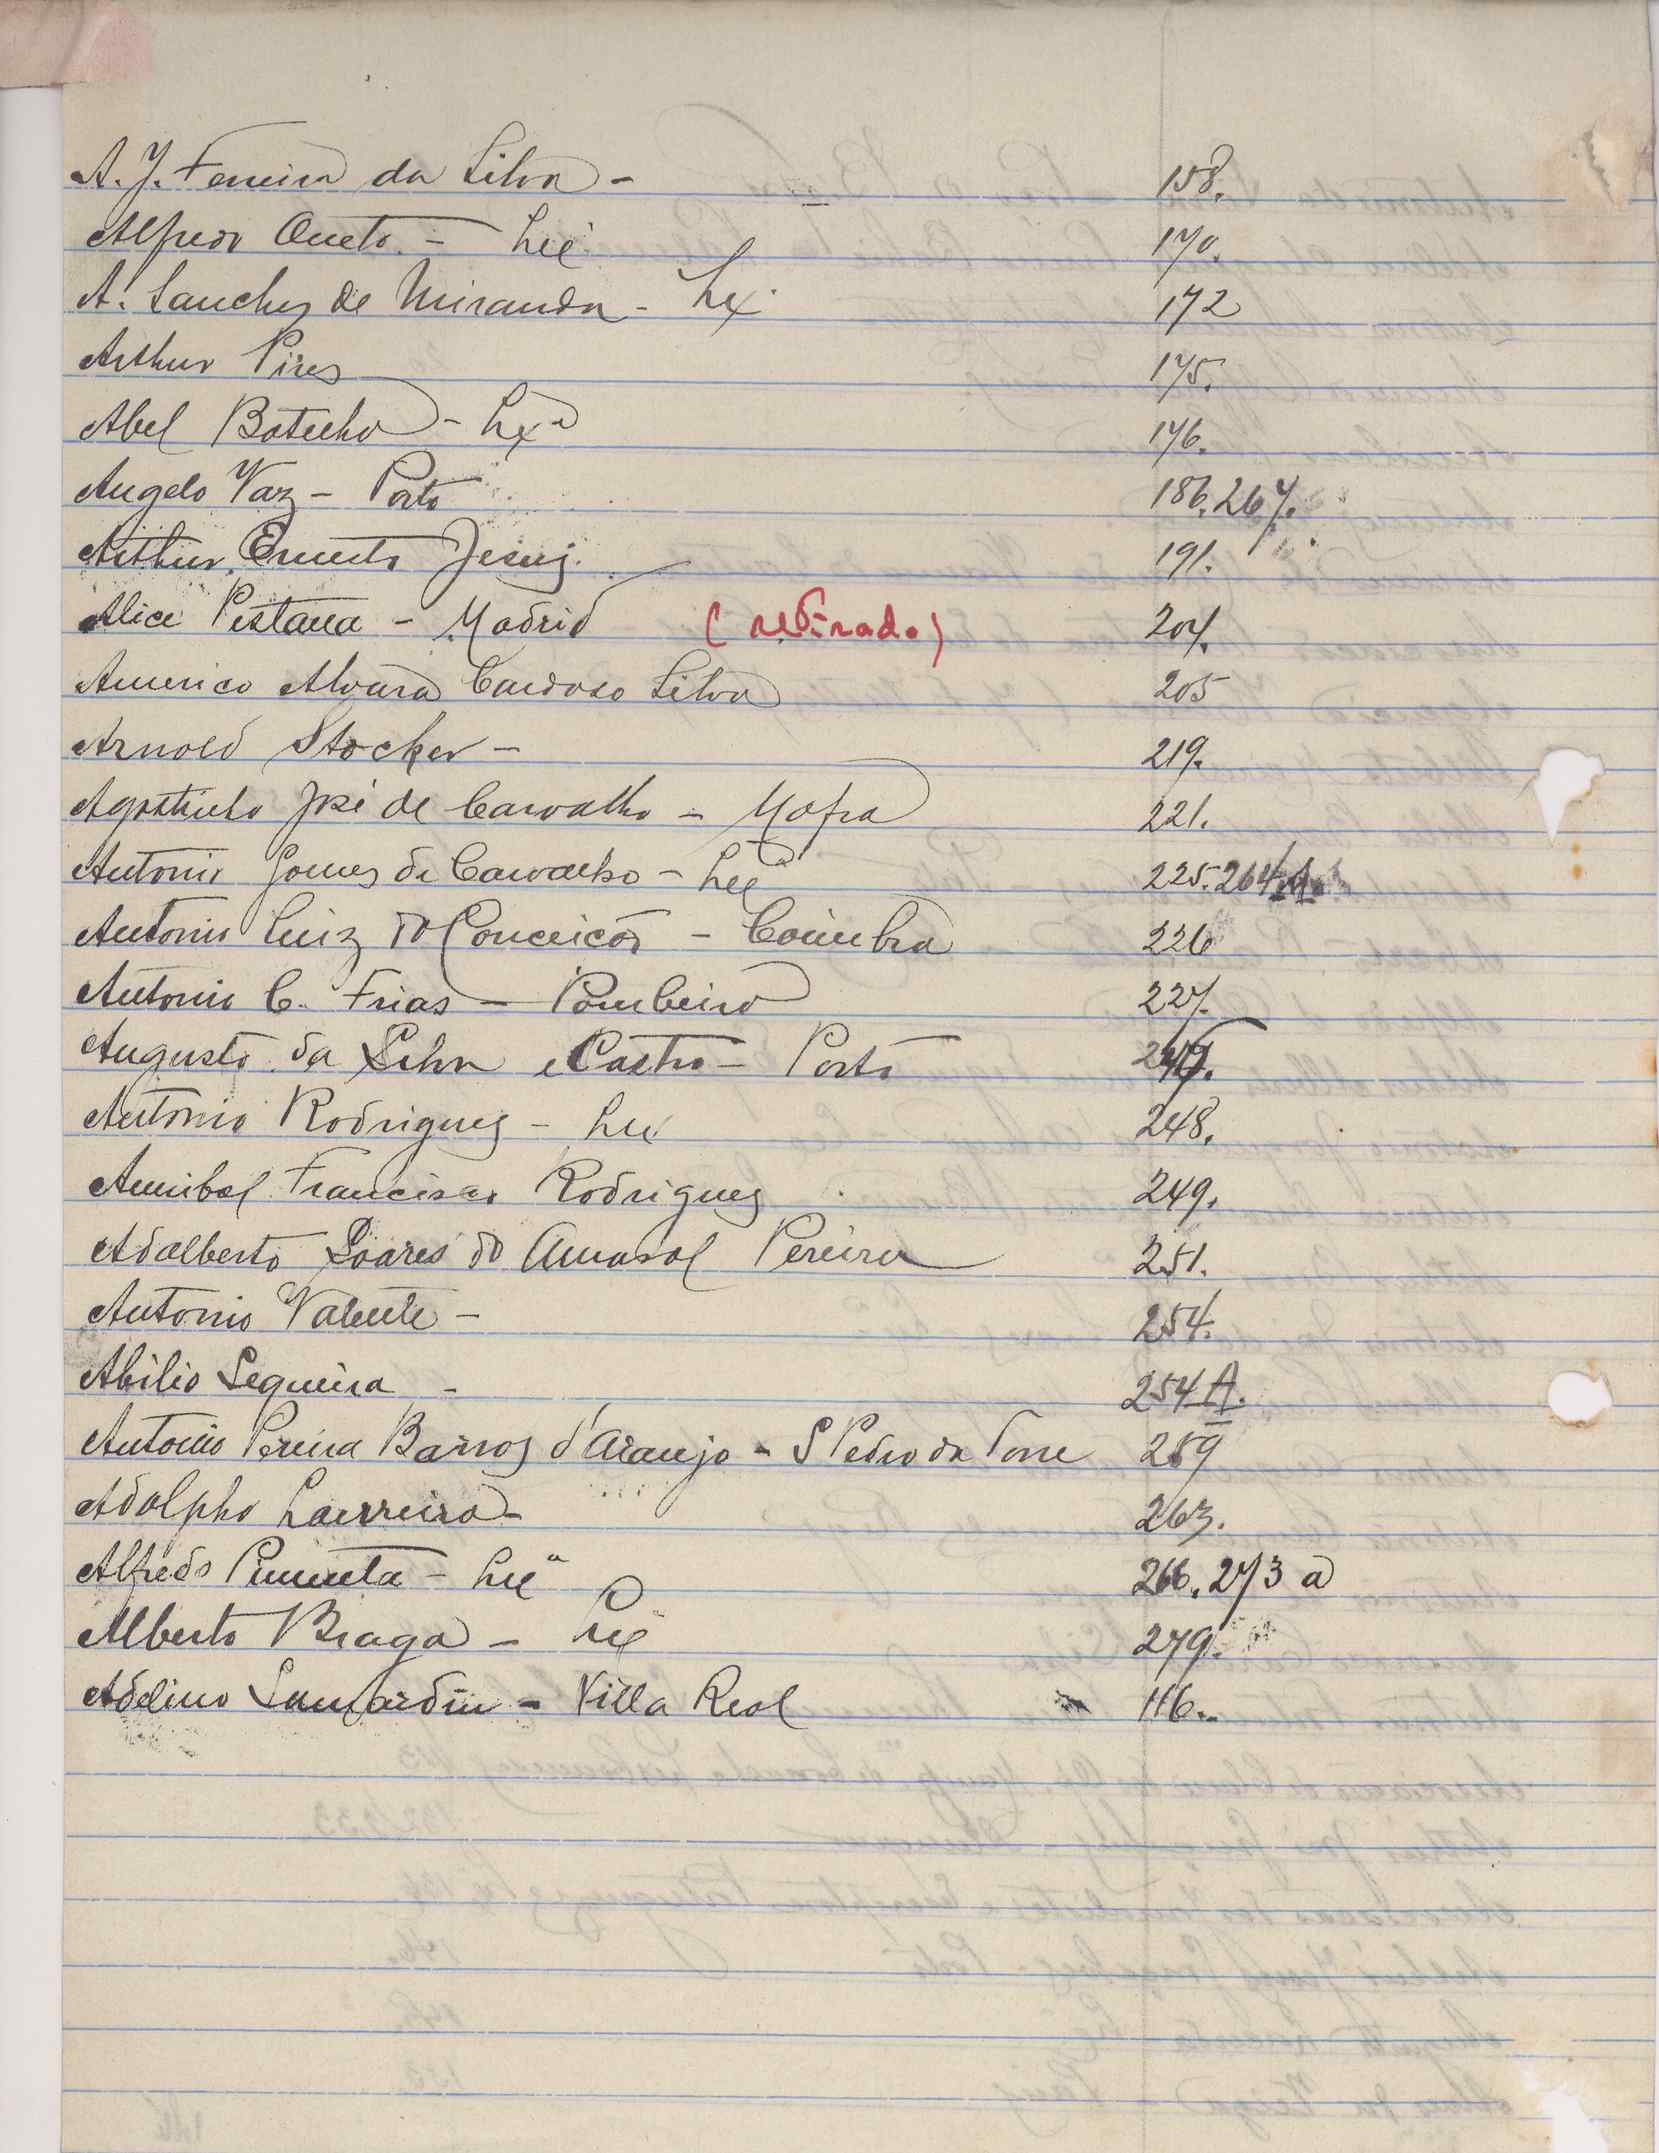 A. J. Ferreira da Silva - 158.
Alfredo Cuneto - Lxª 170.
A. Sanches de Miranda - Lxª 172
Arthur Pires 175.
Abel Botelho - Lxª 176.
Angelo Vaz - Porto 186. 267.
Arthur Ernesto Jesus. 191.
Alice Pestana - Madrid (retirado) 204.
Americo Alvara Cardoso Silva 205
Arnold Stocker - 219.
Agostinho José de Carvalho - Mafra 221.
Antonio Gomes de Carvalho - Lxª 225. 264 A.
Antonio Luiz da Conceição - Coimbra 226
Antonio C. Frias - Pombeiro 227.
Augusto da Silva e Castro - Porto
Antonio Rodrigues - Lxª 248.
Annibal Francisco Rodrigues 249.
Adalberto Soares do Amaral Pereira 251.
Antonio Valente - 254.
Abilio Sequeira - 254 A.
Antonio Pereira Barros d'Araujo - S Pedro da Torre 259
Adolpho Loureiro - 263.
Alfredo Pimenta - Lxª 266. 273 a
Alberto Braga - Lxª 279.
Adelino Samardã - Villa Real 116.